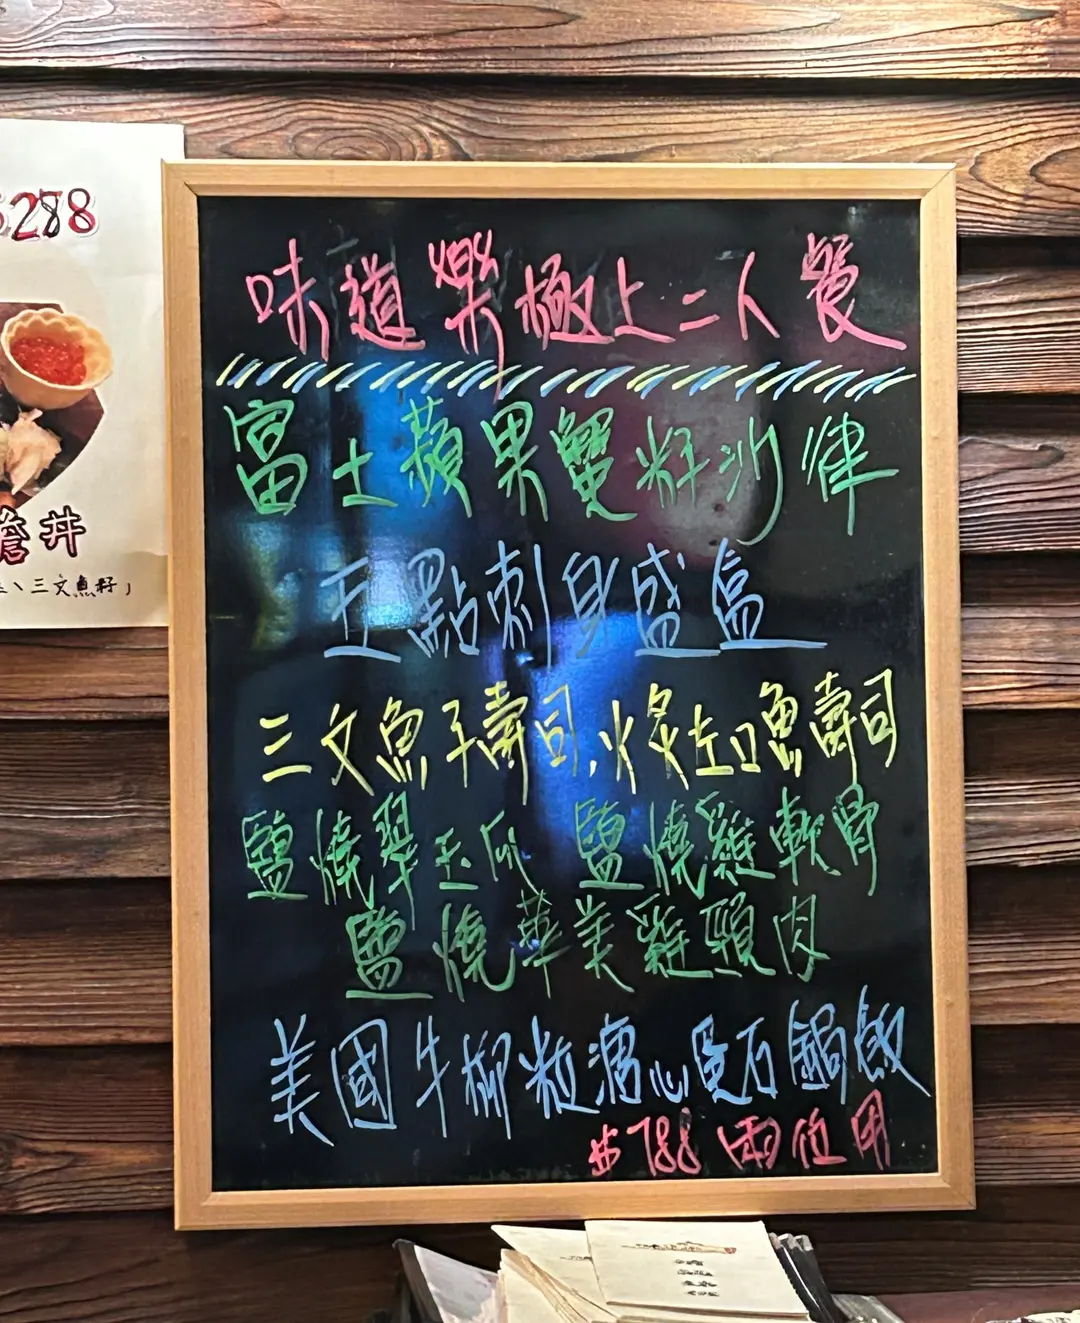 $288
丼
、三文魚籽」
味道樂極上二人餐
富士蘋果蟹籽沙律
五點刺身盛盒
三文魚子壽司,火炙左口魚壽司
鹽燒翠玉瓜 鹽燒雞軟骨
鹽燒華美雞頸肉
美國牛柳粒溏心蛋石鍋飯
$788 兩位用